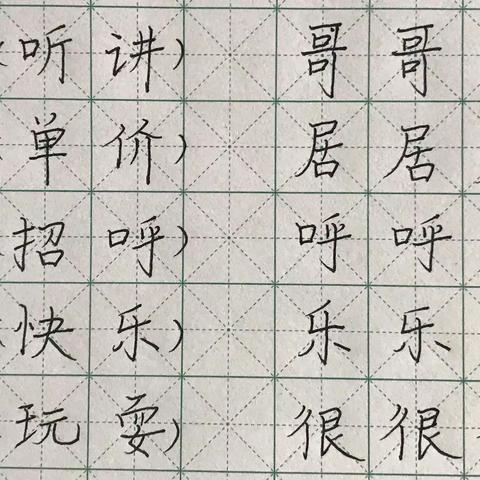 听讲） 哥哥
单价） 居居
招呼） 呼呼
快乐） 乐乐
玩耍） 很很